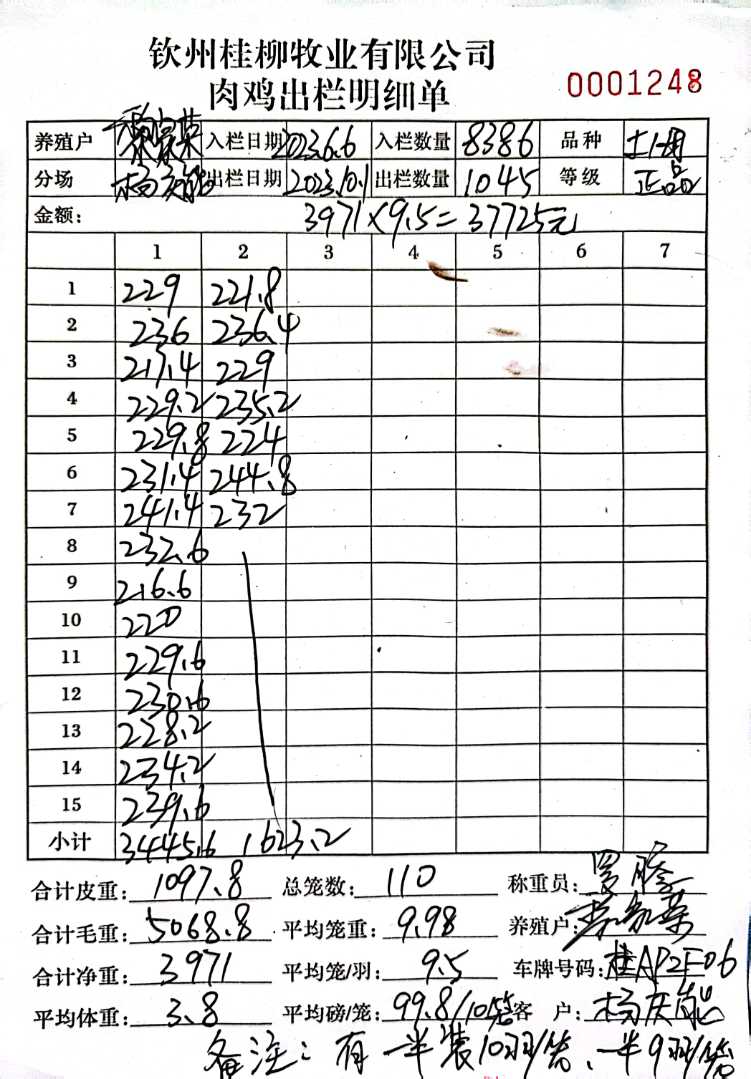 钦州桂柳牧业有限公司
肉鸡出栏明细单 0001248
养殖户 入栏日期 2023.6.6 入栏数量 8386 品种
分场 出栏日期 2023.10.1 出栏数量 1045 等级 正品
金额: 3971×9.5=37725元
1 2 3 4 5 6 7
1 229 221.8
2 236 236.4
3 217.4 229
4 229.2 235.2
5 229.8 224
6 231.4 244.8
7 241.4 232
8 232.6
9 216.6
10 220
11 229.6
12 230.6
13 228.2
14 234.2
15 239.6
小计 3445.6 1623.2
合计皮重: 1097.8 总笼数: 110 称重员:
合计毛重: 5068.8 平均笼重: 9.98 养殖户:
合计净重: 3971 平均笼/羽: 9.5 车牌号码: 桂AP2F06
平均体重: 3.8 平均磅/笼: 99.8/10笼 客 户:
备注: 有一半装10羽/笼、一半9羽/笼